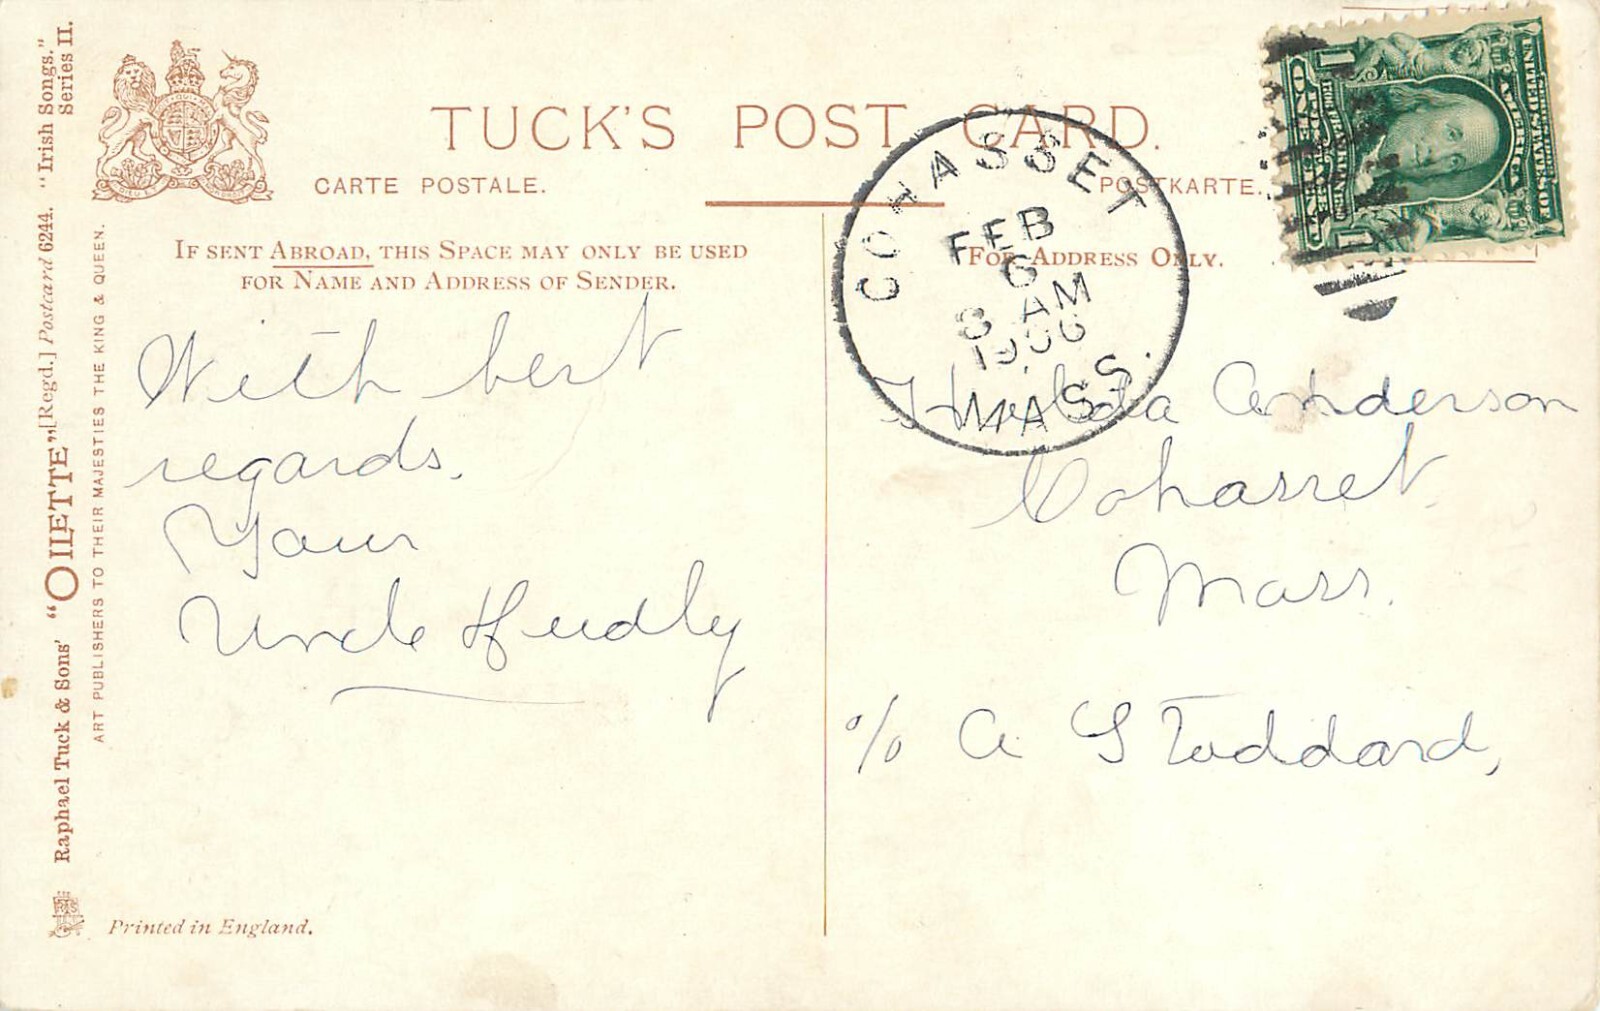 TUCK'S POST CARD.
CARTE POSTALE.
POSTKARTE.
IF SENT ABROAD, THIS SPACE MAY ONLY BE USED
FOR NAME AND ADDRESS OF SENDER.
FOR ADDRESS ONLY.
COHASSET
FEB
6
8 AM
1906
MASS.
UNITED STATES OF
AMERICA
ONE CENT
1 1
With best
regards.
Your
Uncle
Hulda Anderson
Cohasset
Mass.
c/o A Stoddard,
Raphael Tuck & Sons' "OILETTE" [Regd.] Postcard 6244. "Irish Songs."
Series II.
ART PUBLISHERS TO THEIR MAJESTIES THE KING & QUEEN.
Printed in England.